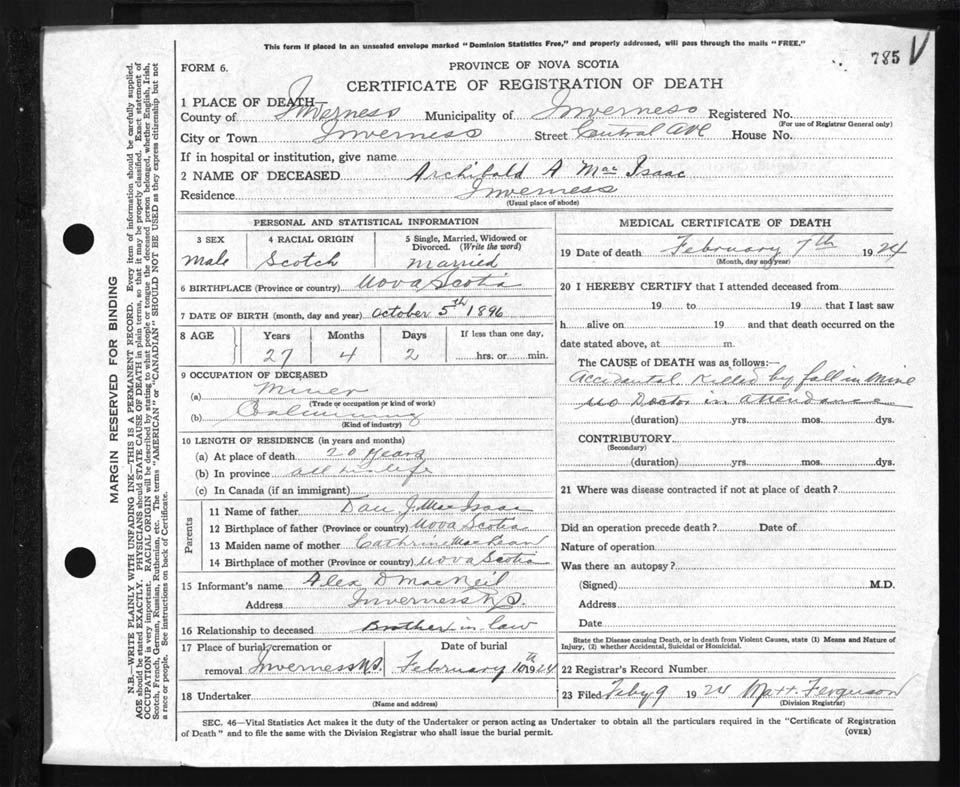 This form if placed in an unsealed envelope marked "Dominion Statistics Free," and properly addressed, will pass through the mails "FREE."
785 V
FORM 6.
PROVINCE OF NOVA SCOTIA
CERTIFICATE OF REGISTRATION OF DEATH
1 PLACE OF DEATH—
County of Inverness Municipality of Inverness Registered No.
(For use of Registrar General only)
City or Town Inverness Street Central Ave House No.
If in hospital or institution, give name
2 NAME OF DECEASED Archibald A MacIsaac
Residence Inverness
(Usual place of abode)
PERSONAL AND STATISTICAL INFORMATION
3 SEX 4 RACIAL ORIGIN 5 Single, Married, Widowed or Divorced. (Write the word)
Male Scotch Married
6 BIRTHPLACE (Province or country) Nova Scotia
7 DATE OF BIRTH (month, day and year) October 5th 1896
8 AGE Years Months Days If less than one day,
27 4 2 hrs. or min.
9 OCCUPATION OF DECEASED
(a) Miner
(Trade or occupation or kind of work)
(b) Coalmining
(Kind of industry)
10 LENGTH OF RESIDENCE (in years and months)
(a) At place of death 20 years
(b) In province all his life
(c) In Canada (if an immigrant)
Parents
11 Name of father Dan J. MacIsaac
12 Birthplace of father (Province or country) Nova Scotia
13 Maiden name of mother Cathrine MacLean
14 Birthplace of mother (Province or country) Nova Scotia
15 Informant's name Alex D MacNeil
Address Inverness N.S.
16 Relationship to deceased Brother in law
17 Place of burial, cremation or removal Inverness N.S. Date of burial February 10th 1924
18 Undertaker
(Name and address)
MEDICAL CERTIFICATE OF DEATH
19 Date of death February 7th 1924
(Month, day and year)
20 I HEREBY CERTIFY that I attended deceased from
19 to 19 that I last saw
h alive on 19 and that death occurred on the
date stated above, at m.
The CAUSE of DEATH was as follows:—
Accidental Killed by fall in Mine
No Doctor in attendance
(duration) yrs. mos. dys.
CONTRIBUTORY
(Secondary)
(duration) yrs. mos. dys.
21 Where was disease contracted if not at place of death?
Did an operation precede death? Date of
Nature of operation
Was there an autopsy?
(Signed) M.D.
Address
Date
State the Disease causing Death, or in death from Violent Causes, state (1) Means and Nature of
Injury, (2) whether Accidental, Suicidal or Homicidal.
22 Registrar's Record Number
23 Filed Feby 9 1924 Matt. Ferguson
(Division Registrar)
SEC. 46—Vital Statistics Act makes it the duty of the Undertaker or person acting as Undertaker to obtain all the particulars required in the "Certificate of Registration
of Death" and to file the same with the Division Registrar who shall issue the burial permit.
(OVER)
MARGIN RESERVED FOR BINDING
N.B.—WRITE PLAINLY WITH UNFADING INK—THIS IS A PERMANENT RECORD. Every item of information should be carefully supplied.
AGE should be stated EXACTLY. PHYSICIANS should STATE CAUSE OF DEATH in plain terms, so that it may be properly classified. Exact statement of
OCCUPATION is very important. RACIAL ORIGIN will be described by stating to what people or tongue the deceased person belonged, whether English, Irish,
Scotch, French, German, Russian, Ruthenian, etc. The terms "AMERICAN" or "CANADIAN" SHOULD NOT BE USED as they express citizenship but not
a race or people. See instructions on back of Certificate.